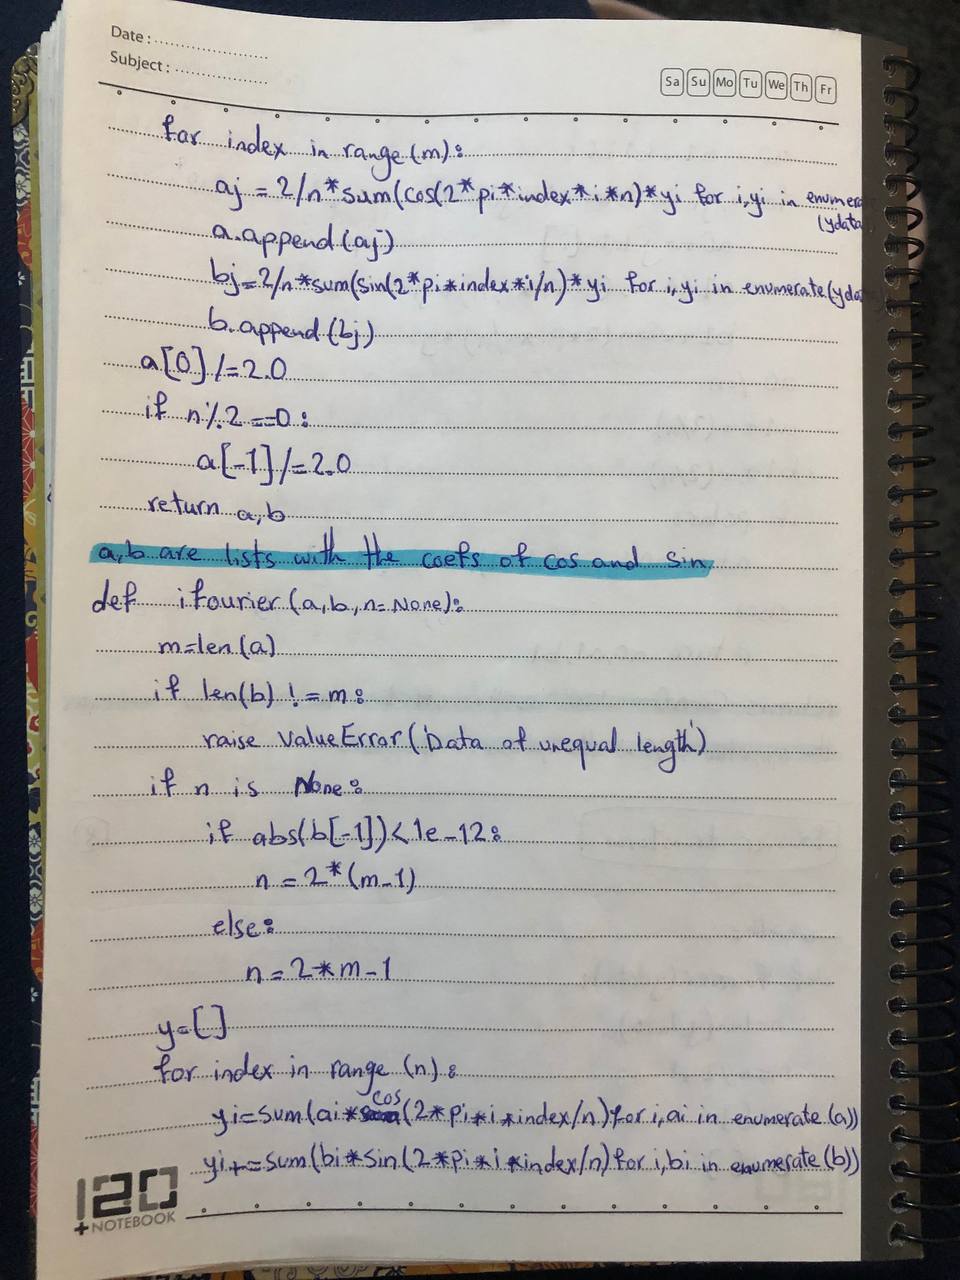 Date :
Subject :
Sa Su Mo Tu We Th Fr
for index in range (m):
aj = 2/n*sum(cos(2*pi*index*i*n)*yi for i,yi in enumera
(ydata
a.append(aj)
bj=2/n*sum(sin(2*pi*index*i/n)*yi for i,yi in enumerate(yda
b.append(bj)
a[0]/=2.0
if n%2==0:
a[-1]/=2.0
return a,b
a,b are lists with the coefs of cos and sin
def ifourier(a,b,n=None):
m=len(a)
if len(b) != m:
raise ValueError('Data of unequal length')
if n is None:
if abs(b[-1])<1e-12:
n=2*(m-1)
else:
n=2*m-1
y=[]
for index in range (n):
yi=sum(ai*cos(2*pi*i*index/n)for i,ai in enumerate(a))
yi+=sum(bi*sin(2*pi*i*index/n)for i,bi in enumerate(b))
120
+NOTEBOOK